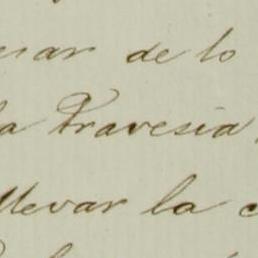 de lo
la travesia
llevar la